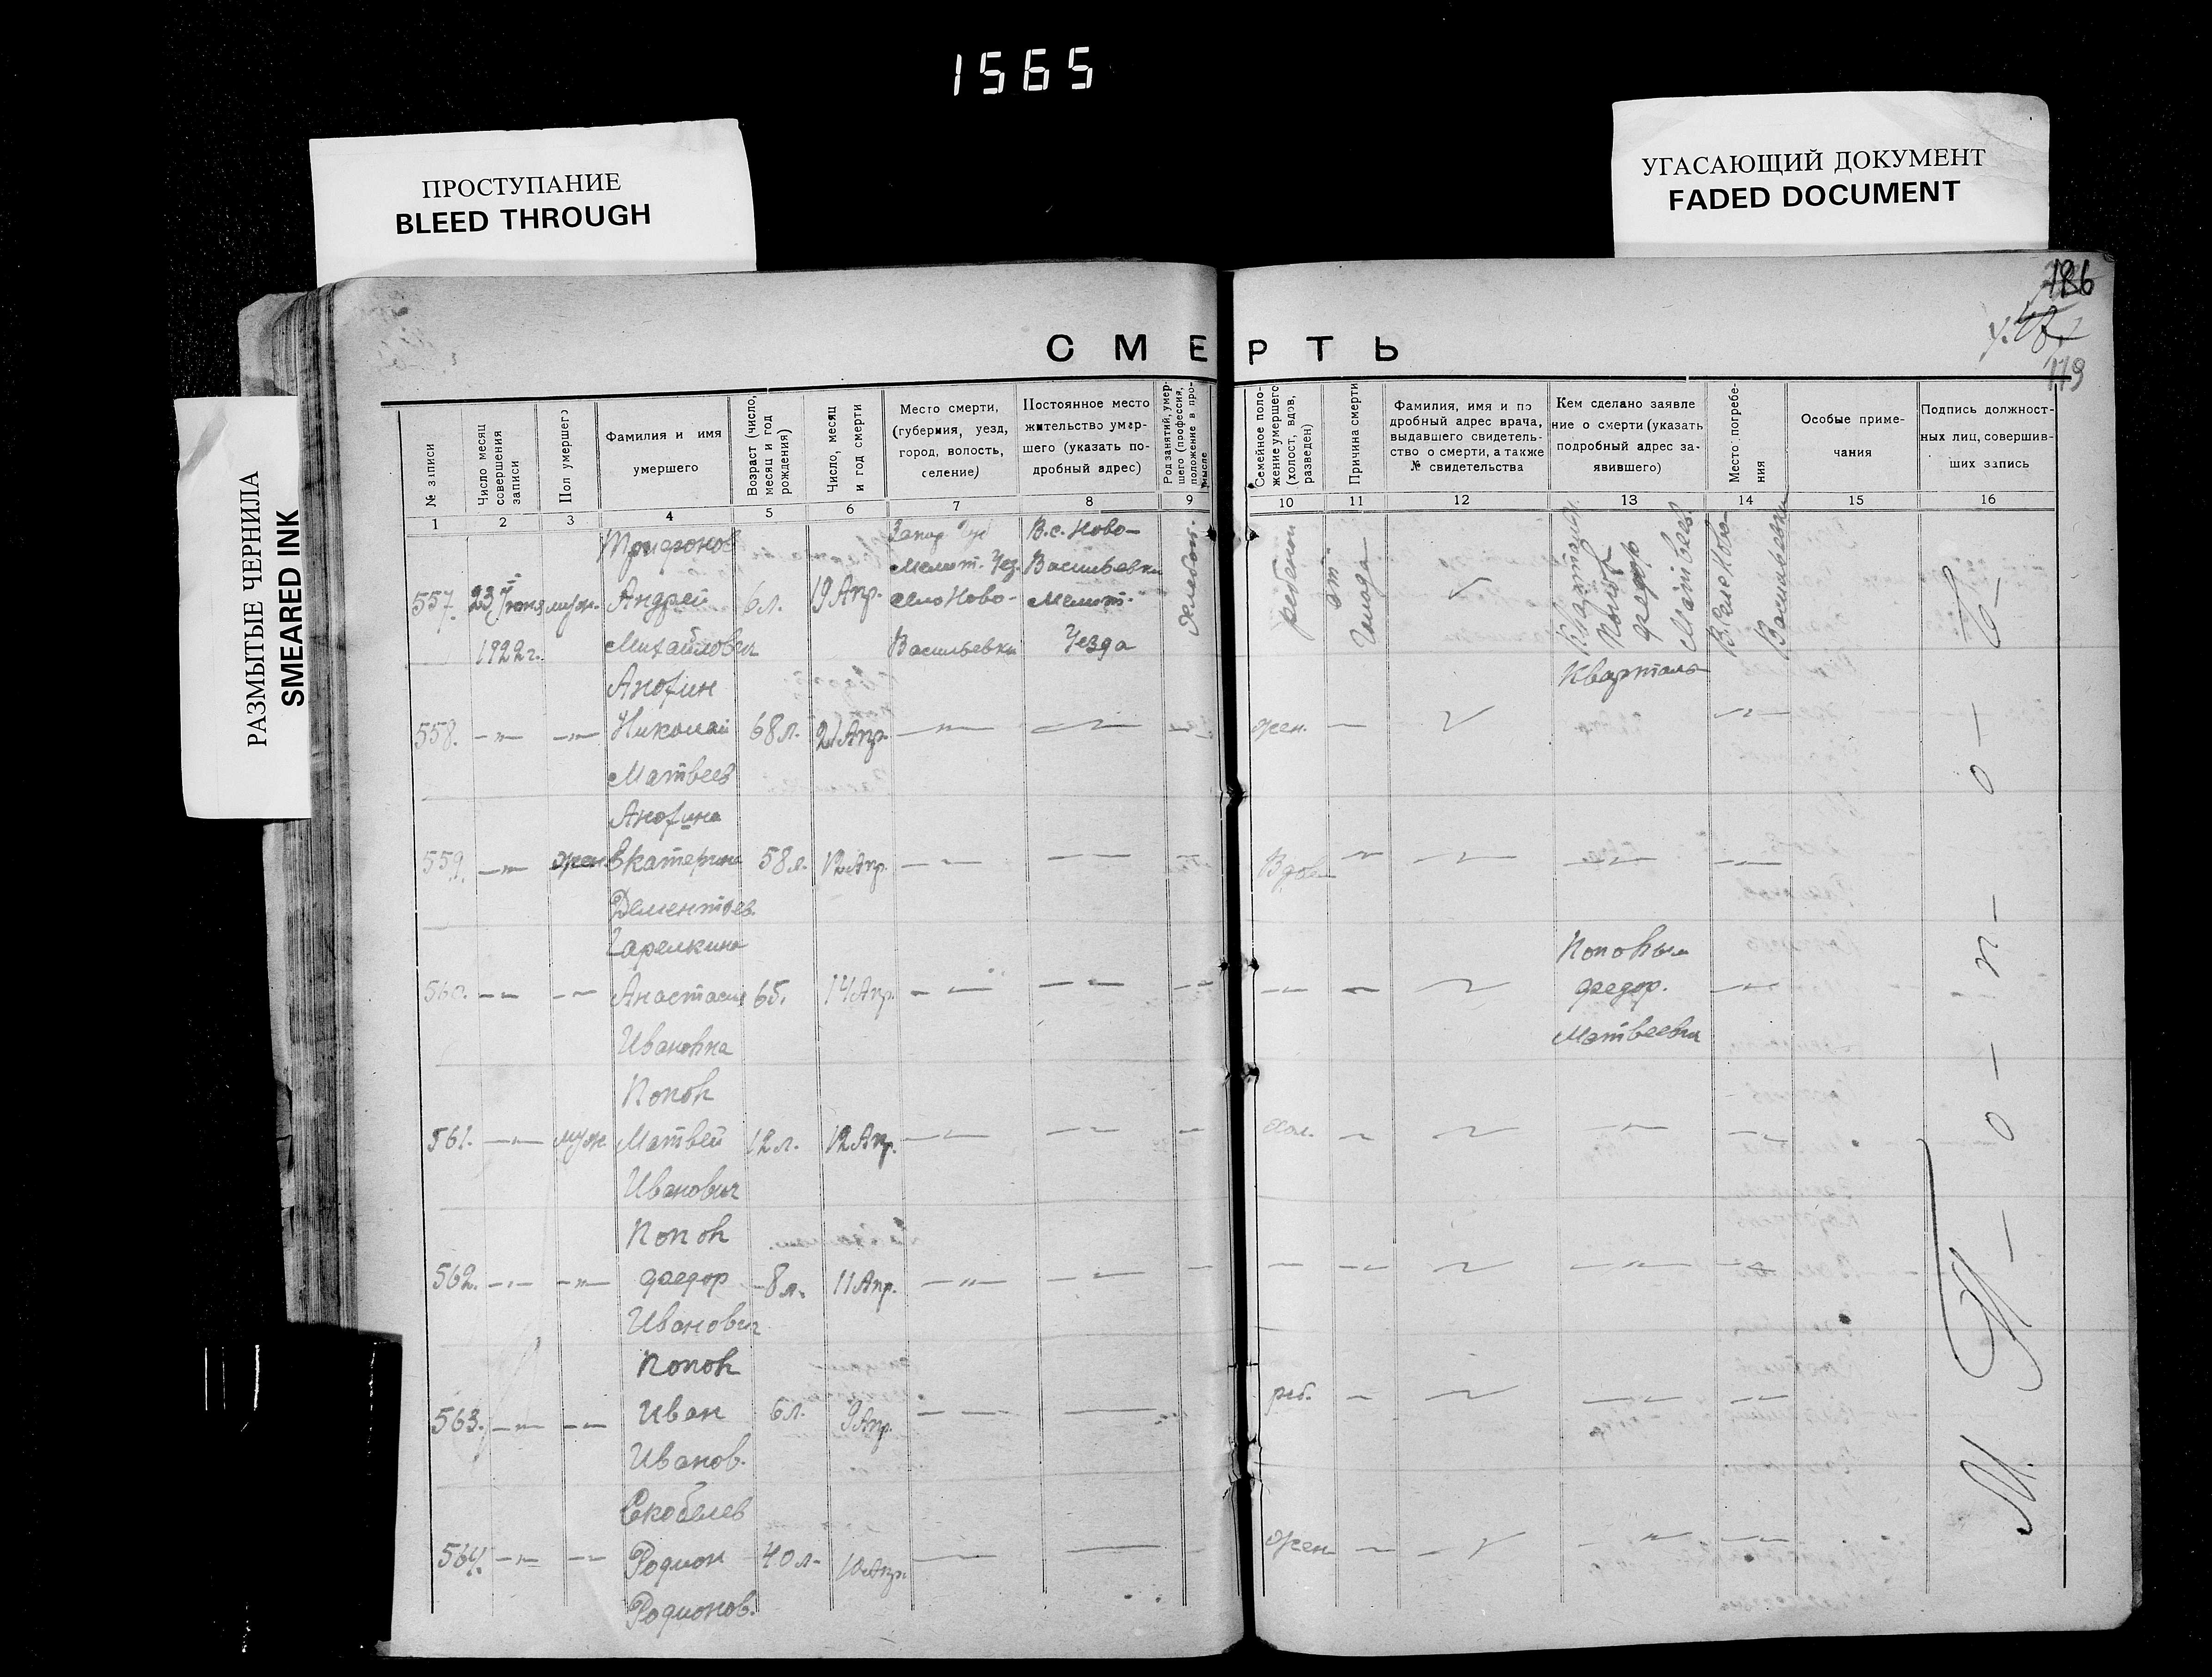 1565
ПРОСТУПАНИЕ
BLEED THROUGH
УГАСАЮЩИЙ ДОКУМЕНТ
FADED DOCUMENT
РАЗМЫТЫЕ ЧЕРНИЛА
SMEARED INK
119
СМЕРТЬ
№ записи
Число месяц
совершения
записи
Пол умершего
Фамилия и имя
умершего
Возраст (число,
месяц и год
рождения)
Число, месяц
и год смерти
Место смерти,
(губермия, уезд,
город, волость,
селение)
Постоянное место
жительство умер-
шего (указать по-
дробный адрес)
Род занятий, умер-
шего (профессия,
положение в про-
мысле
Семейное поло-
жение умершего
(холост, вдов,
разведен)
Причина смерти
Фамилия, имя и по
дробный адрес врача,
выдавшего свидетель-
ство о смерти, а также
№ свидетельства
Кем сделано заявле
ние о смерти (указать
подробный адрес за-
явившего)
Место погребе-
ния
Особые приме-
чания
Подпись должност-
ных лиц, совершив-
ших запись
1 2 3 4 5 6 7 8 9 10 11 12 13 14 15 16
557.
23 Июня
1922 г.
муж.
Трифонов
Андрей
Михайлович
6 л.
19 Апр.
Мелит. Уез.
село Ново-
Васильевки
В.с. Ново-
Васильевки
Мелит.
Уезда
Хлебоп.
ребенок
от
голода
Попов
Федор
Матвеев.
Васильевки
558. —"— —"—
Анофин
Николай
Матвеев
68 л. 21 Апр. —"— —"—
жен. — —"—
Квартал
—"—
559. —"— жен.
Анофина
Екатерина
Дементьев.
58 л. 12 Апр. —"— —"—
Вдов. —"— —"— —"— —"—
560. —"— —"—
Гарелкина
Анастасия
Ивановна
65. 14 Апр. —"— —"— —"—
—"— — —"—
Федор.
Матвеевич
—"—
561. —"— муж
Попов
Матвей
Иванович
12 л. 12 Апр. —"— —"— —
хол. — —"— —"— —"—
562. —"— —"—
Попов
Федор
Иванович
8 л. 11 Апр. —"— —"— —
— —"— —"— —"— —"—
563. —"— —"—
Попов
Иван
Иванов.
6 л. 9 Апр. —"— —
реб. — —"— —"— —"—
564. —"— —"—
Скобелев
Родион
Родионов.
40 л. 10 Апр. — —
жен — —"— —"— —"—